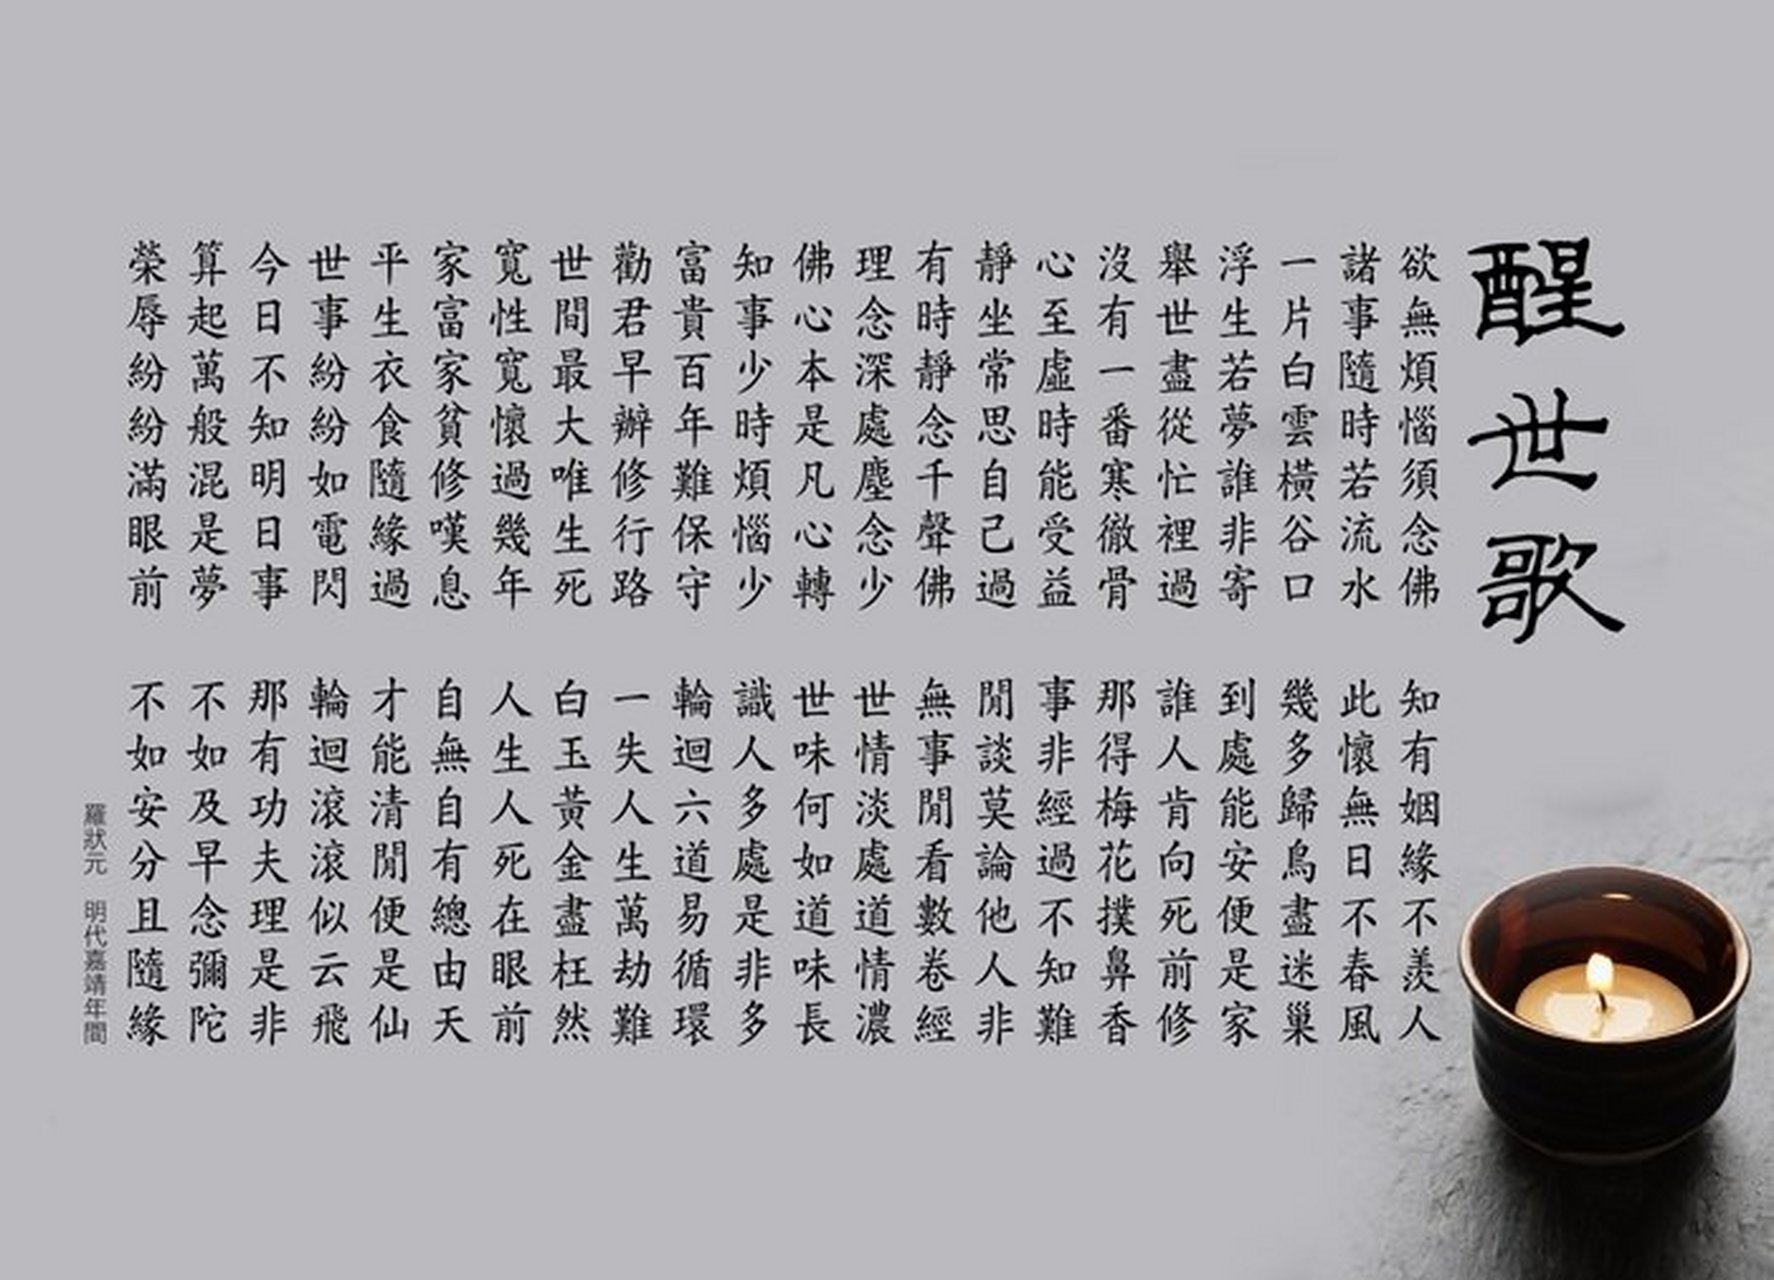 醒世歌
欲無煩惱須念佛
知有姻緣不羨人
諸事隨時若流水
此懷無日不春風
一片白雲橫谷口
幾多歸鳥盡迷巢
浮生若夢誰非寄
到處能安便是家
舉世盡從忙裡過
誰人肯向死前修
沒有一番寒徹骨
那得梅花撲鼻香
心至虛時能受益
事非經過不知難
靜坐常思自己過
閒談莫論他人非
有時靜念千聲佛
無事閒看數卷經
理念深處塵念少
世情淡處道情濃
佛心本是凡心轉
世味何如道味長
知事少時煩惱少
識人多處是非多
富貴百年難保守
輪迴六道易循環
勸君早辦修行路
一失人生萬劫難
世間最大唯生死
白玉黃金盡枉然
寬性寬懷過幾年
人生人死在眼前
家富家貧修嘆息
自無自有總由天
平生衣食隨緣過
才能清閒便是仙
世事紛紛如電閃
輪迴滾滾似云飛
今日不知明日事
那有功夫理是非
算起萬般混是夢
不如及早念彌陀
榮辱紛紛滿眼前
不如安分且隨緣
羅狀元 明代嘉靖年間